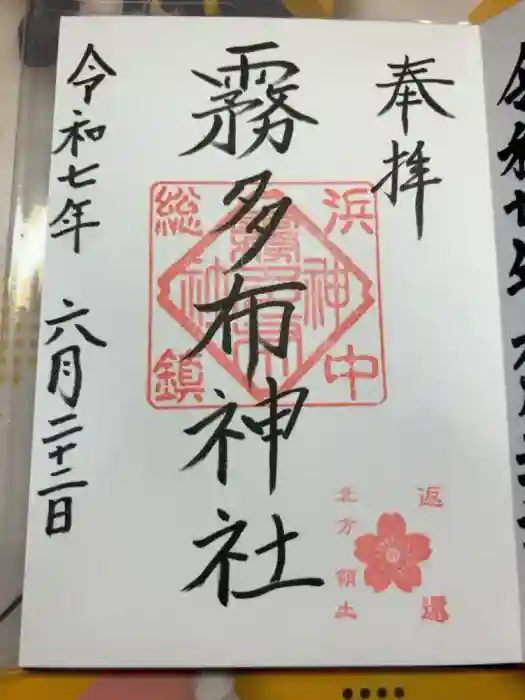 奉拝
霧多布神社
令和七年 六月二十二日
浜中
総鎮
神社
返還
北方領土